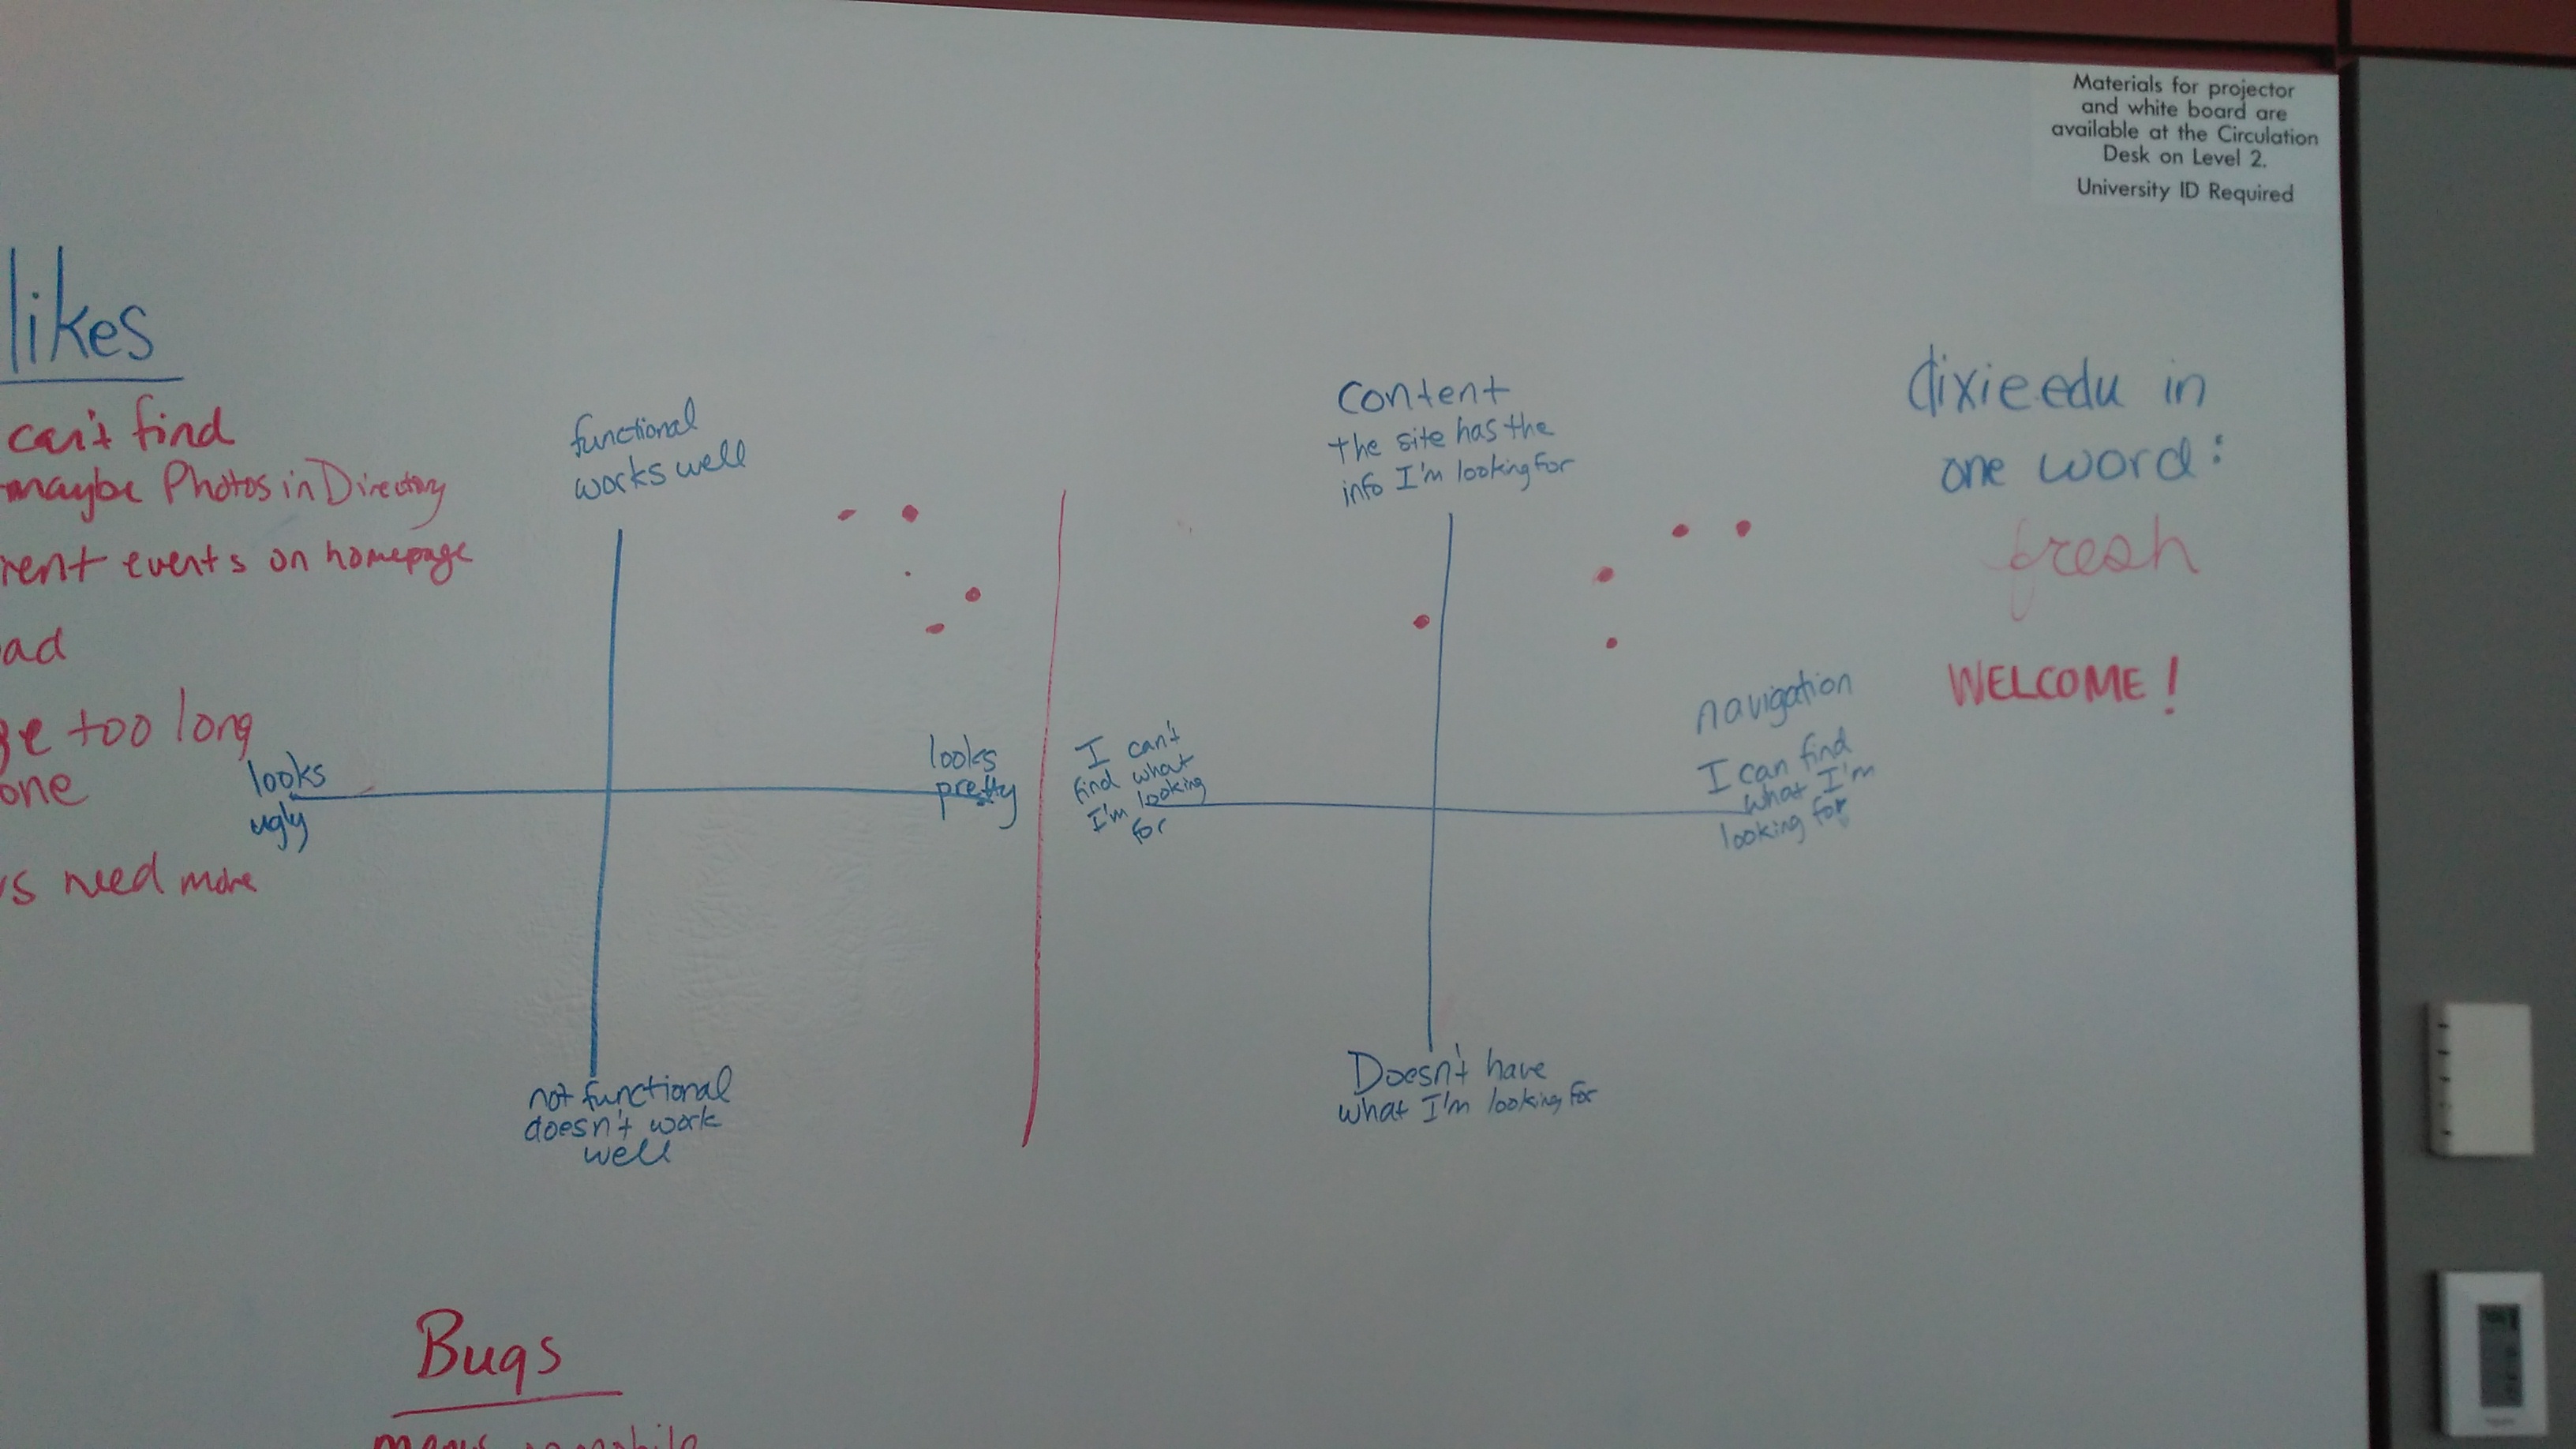 Materials for projector
and white board are
available at the Circulation
Desk on Level 2.
University ID Required
likes
can't find
maybe Photos in Directory
rent events on homepage
ad
ge too long
one
s need more
functional
works well
looks
ugly
looks
pretty
not functional
doesn't work
well
Content
the site has the
info I'm looking for
I can't
find what
I'm looking
for
navigation
I can find
what I'm
looking for
Doesn't have
what I'm looking for
dixie.edu in
one word:
fresh
WELCOME!
Bugs